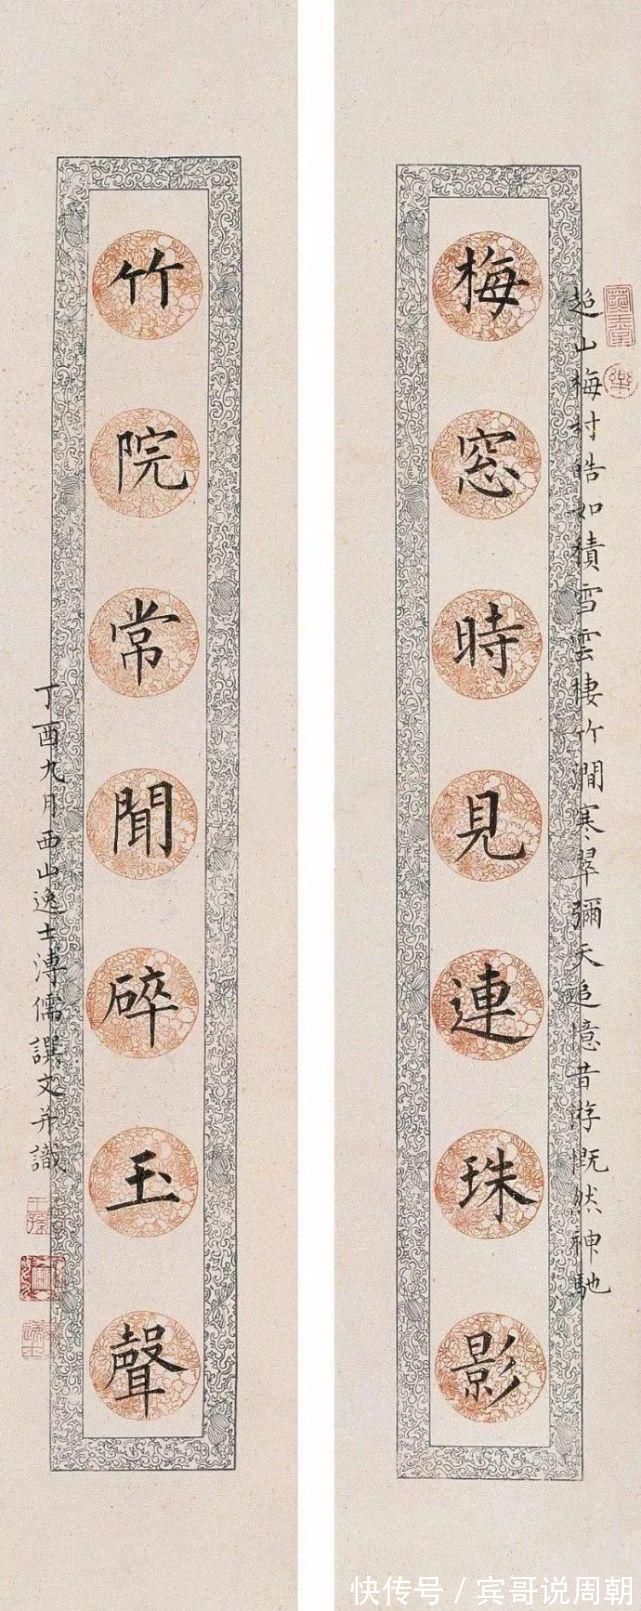 梅窓時見連珠影
超山梅村皓如積雪雲棲竹澗寒翠彌天追憶昔游慨然神馳
竹院常聞碎玉聲
丁酉九月西山逸士溥儒譔文并識
快传号 / 宾哥说周朝